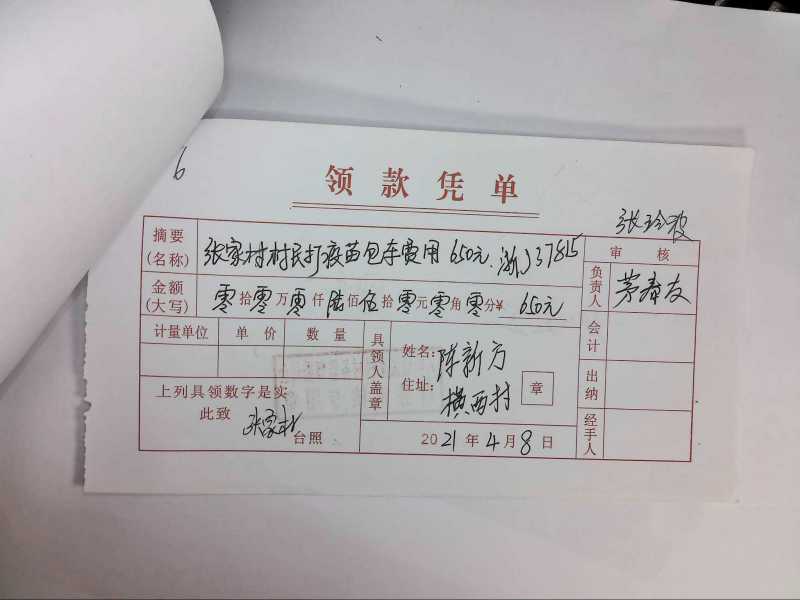 6
领款凭单
张玲波
摘要(名称) 张家村村民打疫苗包车费用 650元. 浙J37815
审核
金额(大写) 零拾零万零仟陆佰伍拾零元零角零分¥ 650元
负责人 茅春友
计量单位 单价 数量
具领人盖章
姓名: 陈新方
住址: 横西村
章
会计
出纳
经手人
上列具领数字是实
此致
张家村 台照
2021年4月8日